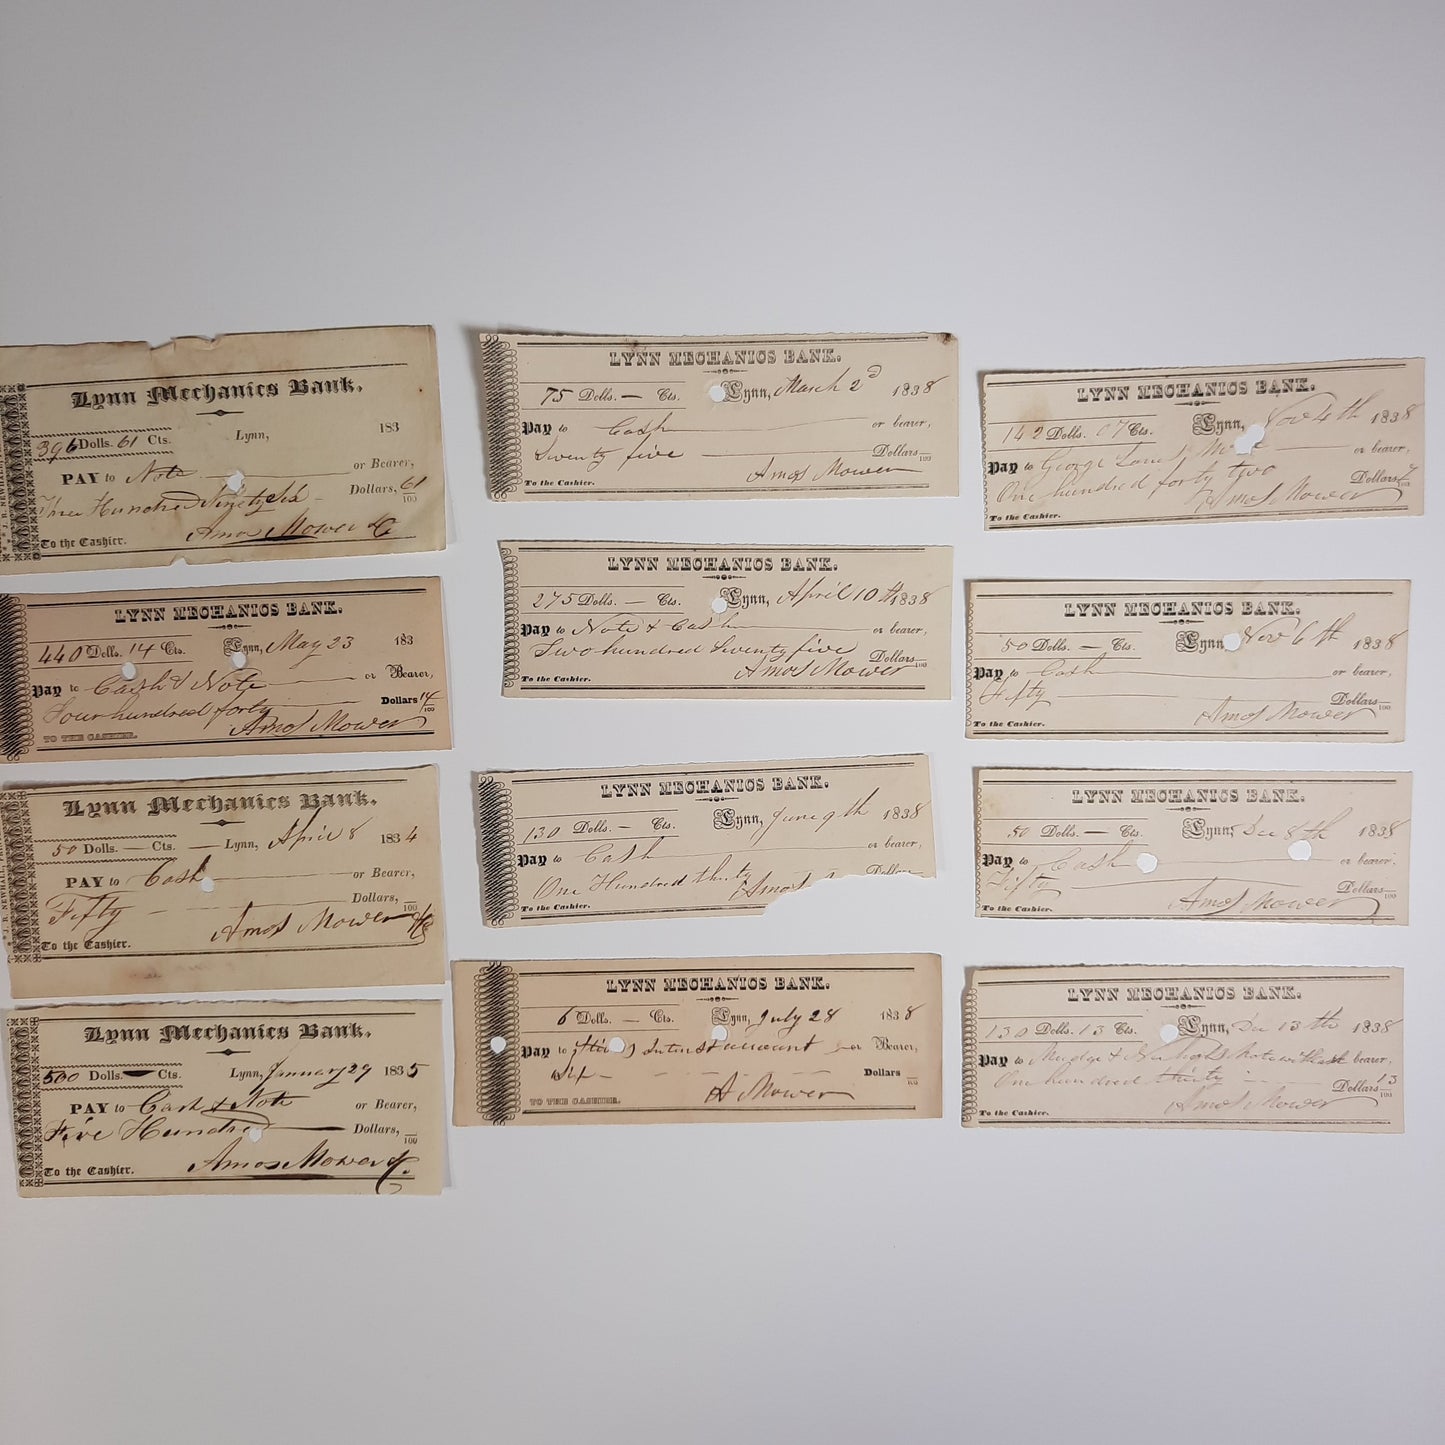 Lynn Mechanics Bank.
396 Dolls. 61 Cts. Lynn, 183
PAY to Note or Bearer,
Three Hundred Ninety Six Dollars, 61/100
To the Cashier. Amos Mower & Co
LYNN MECHANICS BANK.
440 Dolls. 14 Cts. Lynn, May 23 183
Pay to Cash & Note or Bearer,
Four hundred forty Dollars 14/100
TO THE CASHIER. Amos Mower
* J. R. NEWHALL, PRINT
Lynn Mechanics Bank.
50 Dolls. — Cts. Lynn, April 8 1834
PAY to Cash or Bearer,
Fifty Dollars, /100
To the Cashier. Amos Mower & Co
Lynn Mechanics Bank.
500 Dolls. — Cts. Lynn, January 29 1835
PAY to Cash & Note or Bearer,
Five Hundred Dollars, /100
To the Cashier. Amos Mower & Co.
LYNN MECHANICS BANK.
75 Dolls. — Cts. Lynn, March 2d 1838
Pay to Cash or bearer,
Seventy five Dollars /100
To the Cashier. Amos Mower
LYNN MECHANICS BANK.
275 Dolls. — Cts. Lynn, April 10th 1838
Pay to Note & Cash or bearer,
Two hundred Seventy five Dollars /100
To the Cashier. Amos Mower
LYNN MECHANICS BANK.
130 Dolls. — Cts. Lynn, June 9th 1838
Pay to Cash or bearer,
One Hundred thirty Dollars
To the Cashier. Amos
LYNN MECHANICS BANK.
6 Dolls. — Cts. Lynn, July 28 1838
Pay to or Bearer,
Six Dollars /100
TO THE CASHIER. A Mower
LYNN MECHANICS BANK.
142 Dolls. 07 Cts. Lynn, Nov 4th 1838
Pay to George or bearer,
One hundred forty two Dollars 7/100
To the Cashier. Amos Mower
LYNN MECHANICS BANK.
50 Dolls. — Cts. Lynn, Nov 6th 1838
Pay to Cash or bearer,
Fifty Dollars /100
To the Cashier. Amos Mower
LYNN MECHANICS BANK.
50 Dolls. — Cts. Lynn, Dec 8th 1838
Pay to Cash or bearer,
Fifty Dollars /100
To the Cashier. Amos Mower
LYNN MECHANICS BANK.
130 Dolls. 13 Cts. Lynn, Dec 13th 1838
Pay to Mudge & Note or bearer,
One hundred thirty Dollars 13/100
To the Cashier. Amos Mower